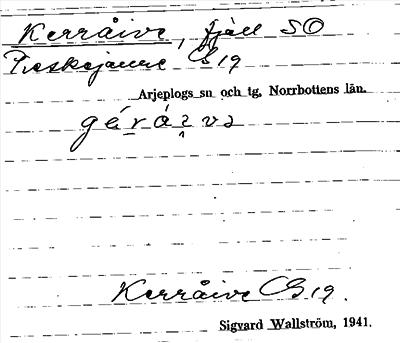 Kerråive, fjäll SO
Pieskejaure G 19
Arjeplogs sn och tg, Norrbottens län.
Kerråive G 19.
Sigvard Wallström, 1941.